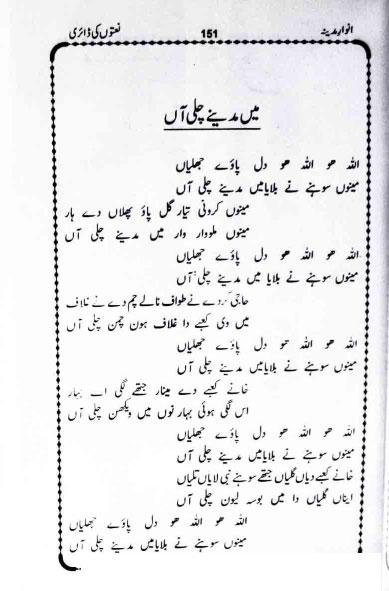 انوارِ مدینہ 151 نعتوں کی ڈائری
میں مدینے چلی آں
اللہ ھو اللہ ھو دل پاؤے جھلیاں
مینوں سوہنے نے بلایا میں مدینے چلی آں
مینوں کرونی تیار گل پاؤ پھلاں دے ہار
مینوں ملو وار وار میں مدینے چلی آں
اللہ ھو اللہ ھو دل پاؤے جھلیاں
مینوں سوہنے نے بلایا میں مدینے چلی آں
حاجی کردے نے طواف نالے چم دے نے غلاف
میں وی کعبے دا غلاف ہون چمن چلی آں
اللہ ھو اللہ ھو دل پاؤے جھلیاں
مینوں سوہنے نے بلایا میں مدینے چلی آں
خانے کعبے دے مینار جتھے لگی اے بہار
اس لگی ہوئی بہار نوں میں ویکھن چلی آں
اللہ ھو اللہ ھو دل پاؤے جھلیاں
مینوں سوہنے نے بلایا میں مدینے چلی آں
خانے کعبے دیاں گلیاں جتھے سوہنے نبی لایاں تلیاں
ایناں گلیاں دا میں بوسہ لیون چلی آں
اللہ ھو اللہ ھو دل پاؤے جھلیاں
مینوں سوہنے نے بلایا میں مدینے چلی آں